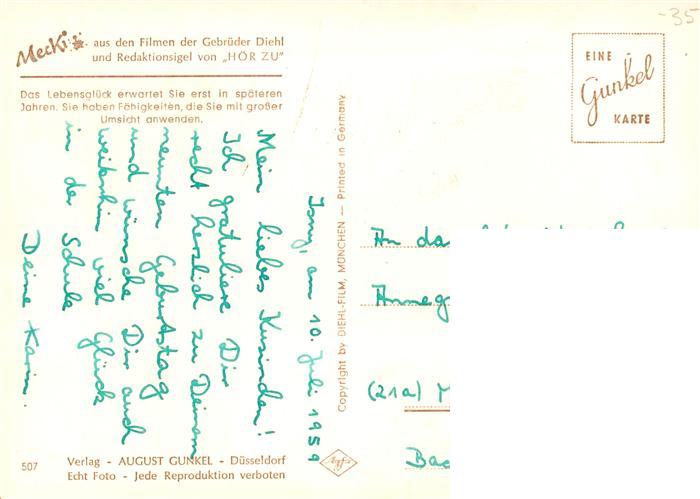 -35
Mecki aus den Filmen der Gebrüder Diehl
und Redaktionsigel von „HÖR ZU"
Das Lebensglück erwartet Sie erst in späteren
Jahren. Sie haben Fähigkeiten, die Sie mit großer
Umsicht anwenden.
EINE
Gunkel
KARTE
Isny, am 10. Juli 1959
Mein liebes Kusinchen!
Ich gratuliere Dir
recht herzlich zu Deinem
neunten Geburtstag
und wünsche Dir auch
weiterhin viel Glück
in der Schule
Deine Karin.
Copyright by DIEHL-FILM, MÜNCHEN — Printed in Germany
An da
Anneg
(21a) M
Bad
507
Verlag - AUGUST GUNKEL - Düsseldorf
Echt Foto - Jede Reproduktion verboten
Agfa